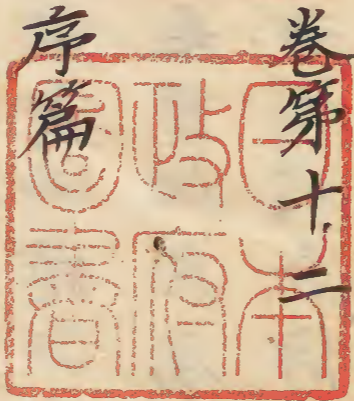 卷第十二
序篇
日本
政府
圖書